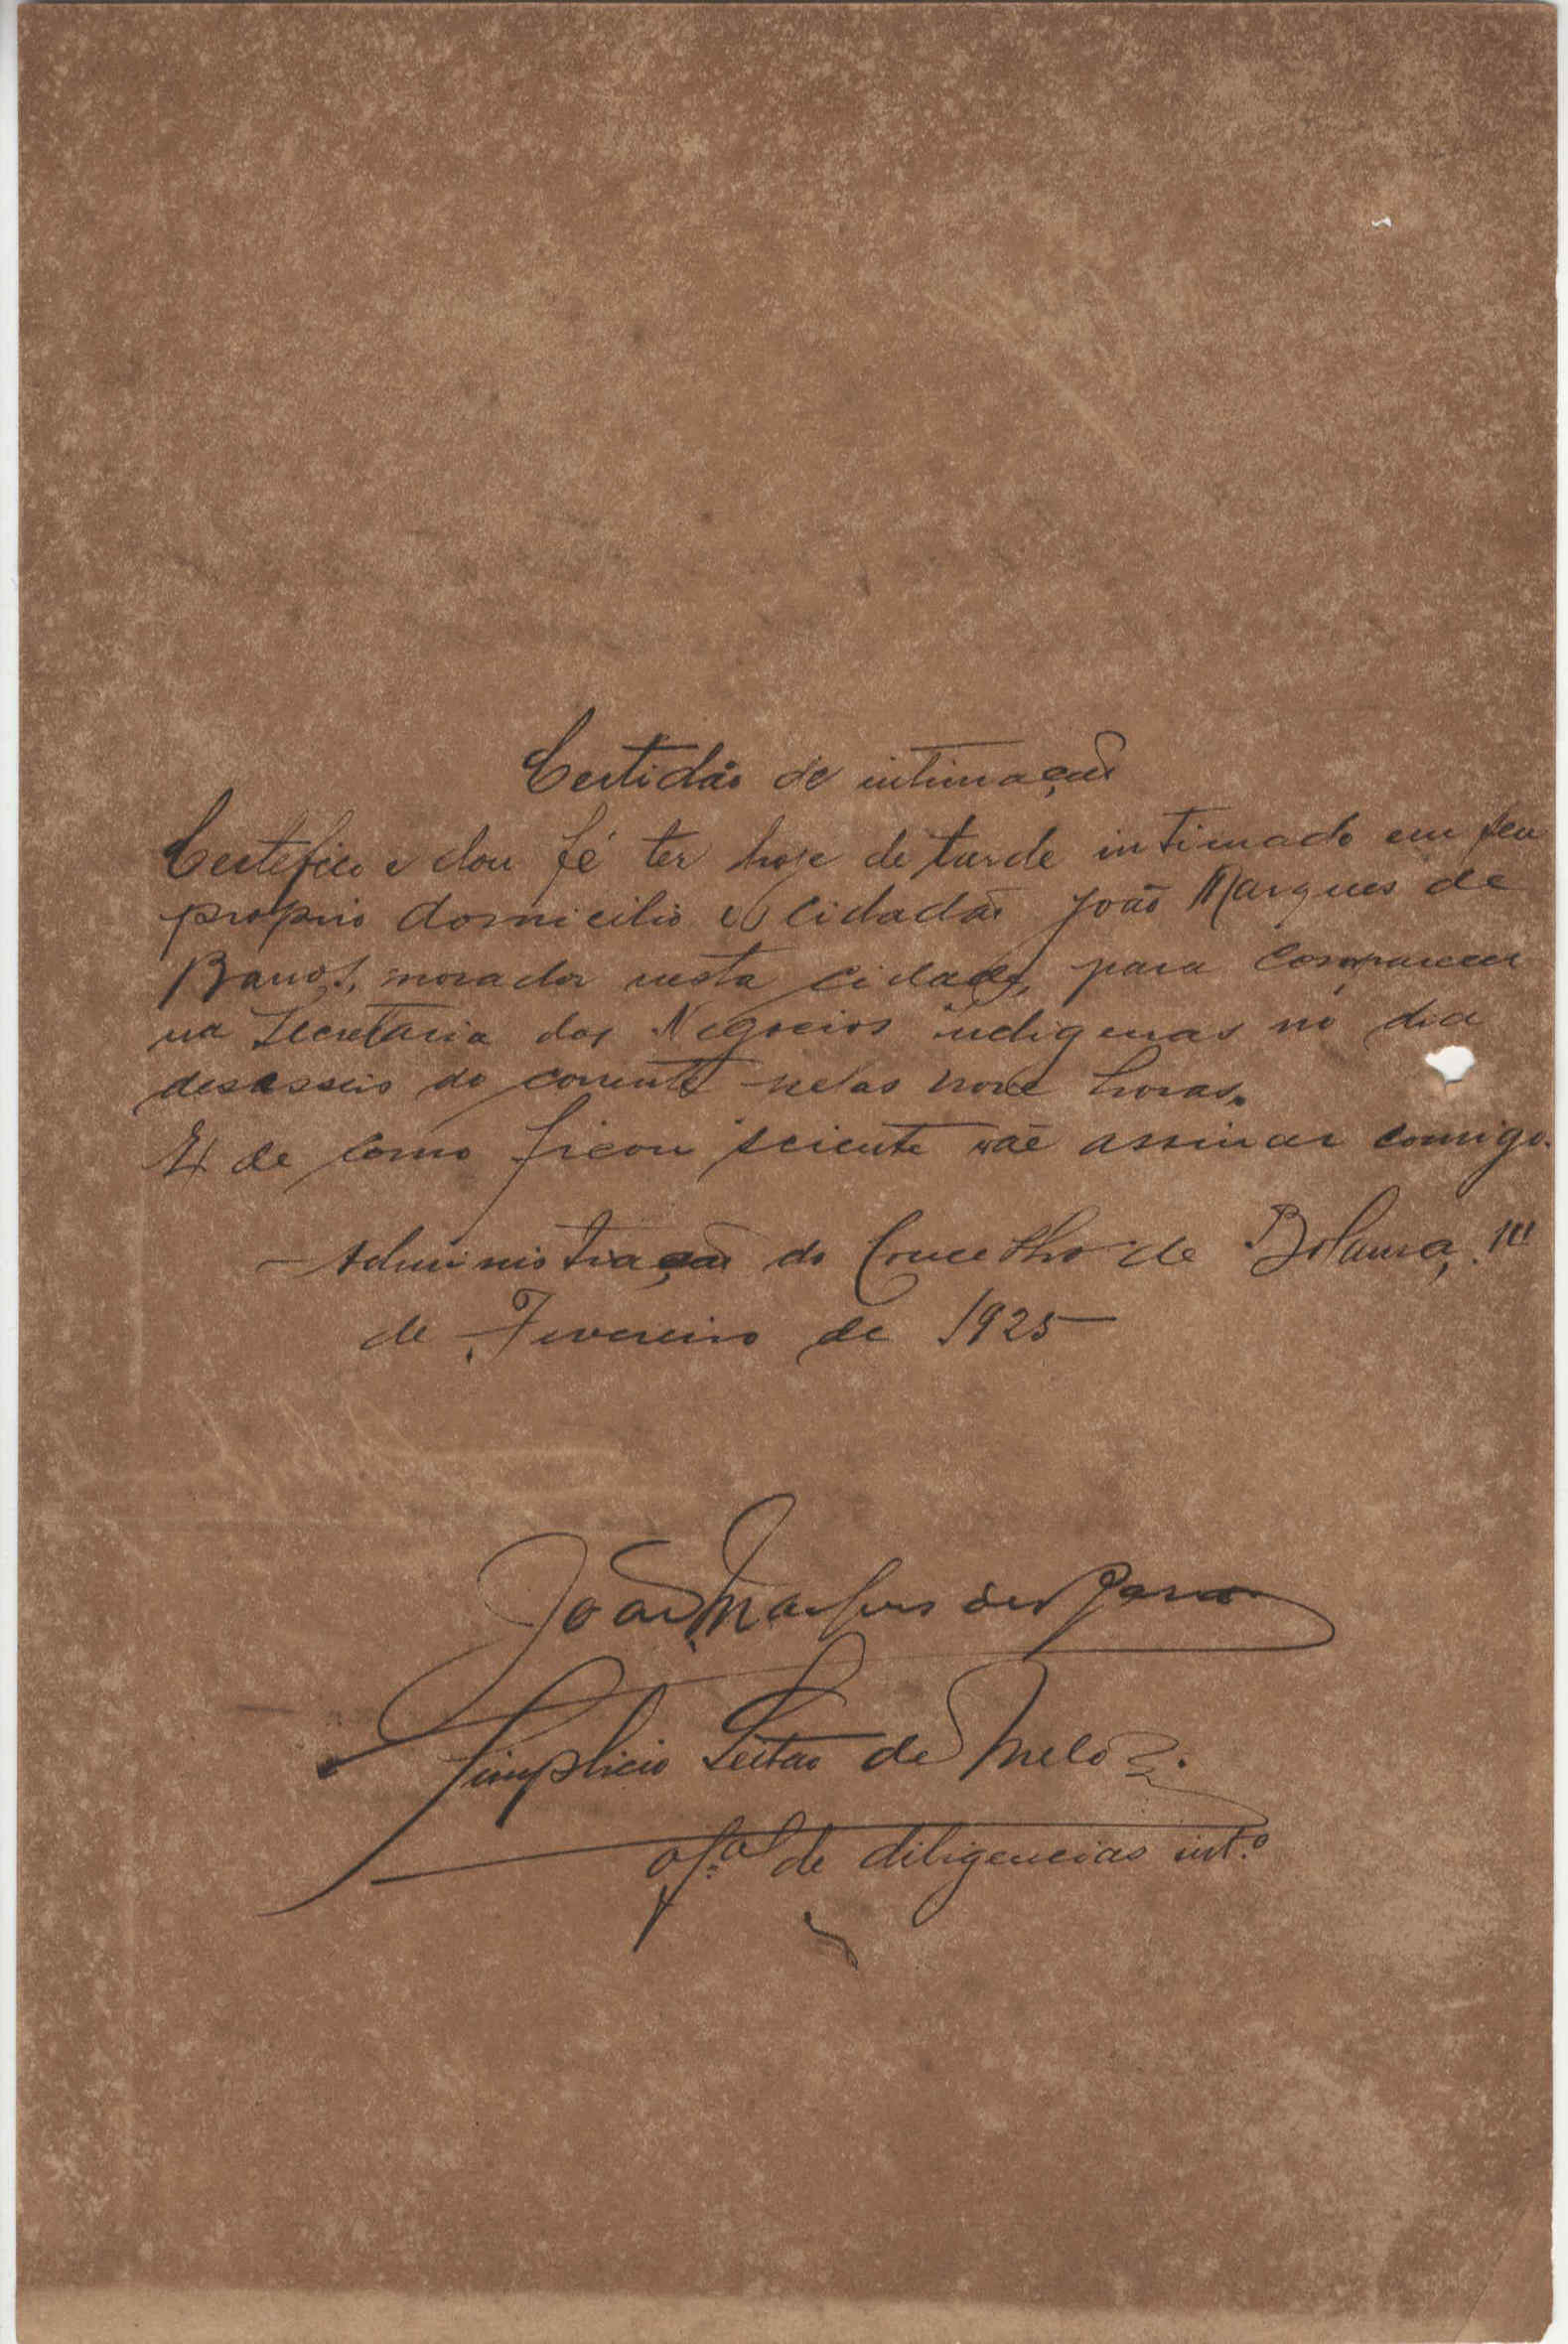 Certidão de intimação
Certefico e dou fé ter hoje de tarde intimado em seu
proprio domicilio o cidadão João Marques de
Barros, morador nesta cidade, para comparecer
na Secretaria dos Negocios indigenas no dia
desasseis do corrente pelas nove horas.
E de como ficou sciente vae assinar comigo.
Administração do Concelho de Bolama,
de Fevereiro de 1925
João Marques de Barros
Simplicio Leitão de Melo
of.al de diligencias int.o